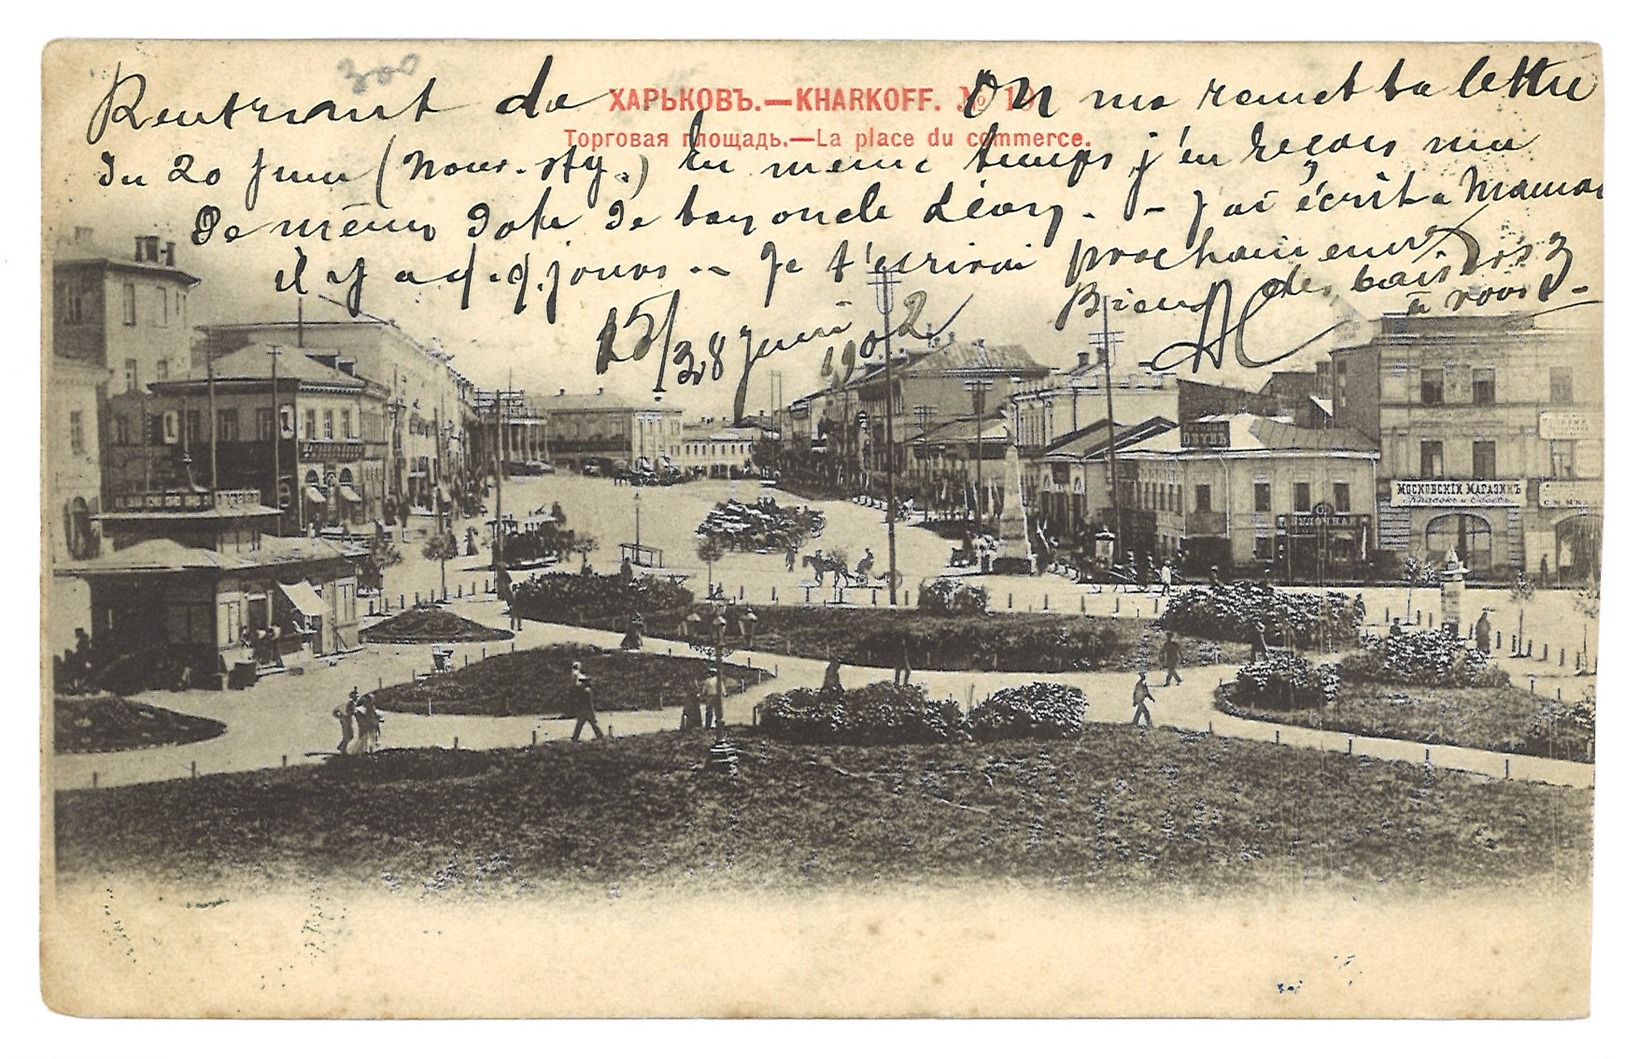 300
Rentrant de ХАРЬКОВЪ.—KHARKOFF. № 19 on me remet ta lettre
Торговая площадь.—La place du commerce.
du 20 Juin (Nouv. sty.) En même temps j'en reçois une
De même date de ton oncle Léon. - J'ai écrit à Maman
il y a q.q. jours -- Je t'écrirai prochainement
Bien des baisers
à vous 3
15/28 juin 1902
МОСКОВСКІЙ МАГАЗИНЪ
ОБУВЬ
БУЛОЧНАЯ